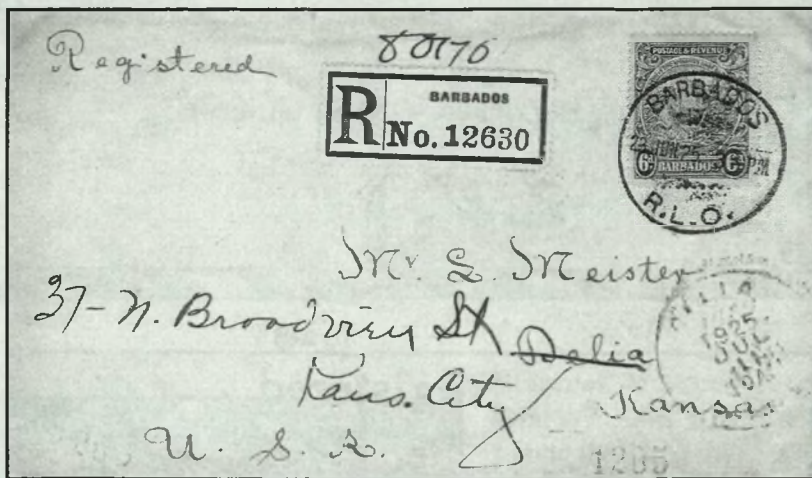 Registered
80170
R BARBADOS
No. 12630
POSTAGE & REVENUE
6D BARBADOS 6D
BARBADOS
R.L.O.
Mr. L. Meister
37-N. Broadview St Delia
Kans. City Kansas
U. S. A.
1925
JUL